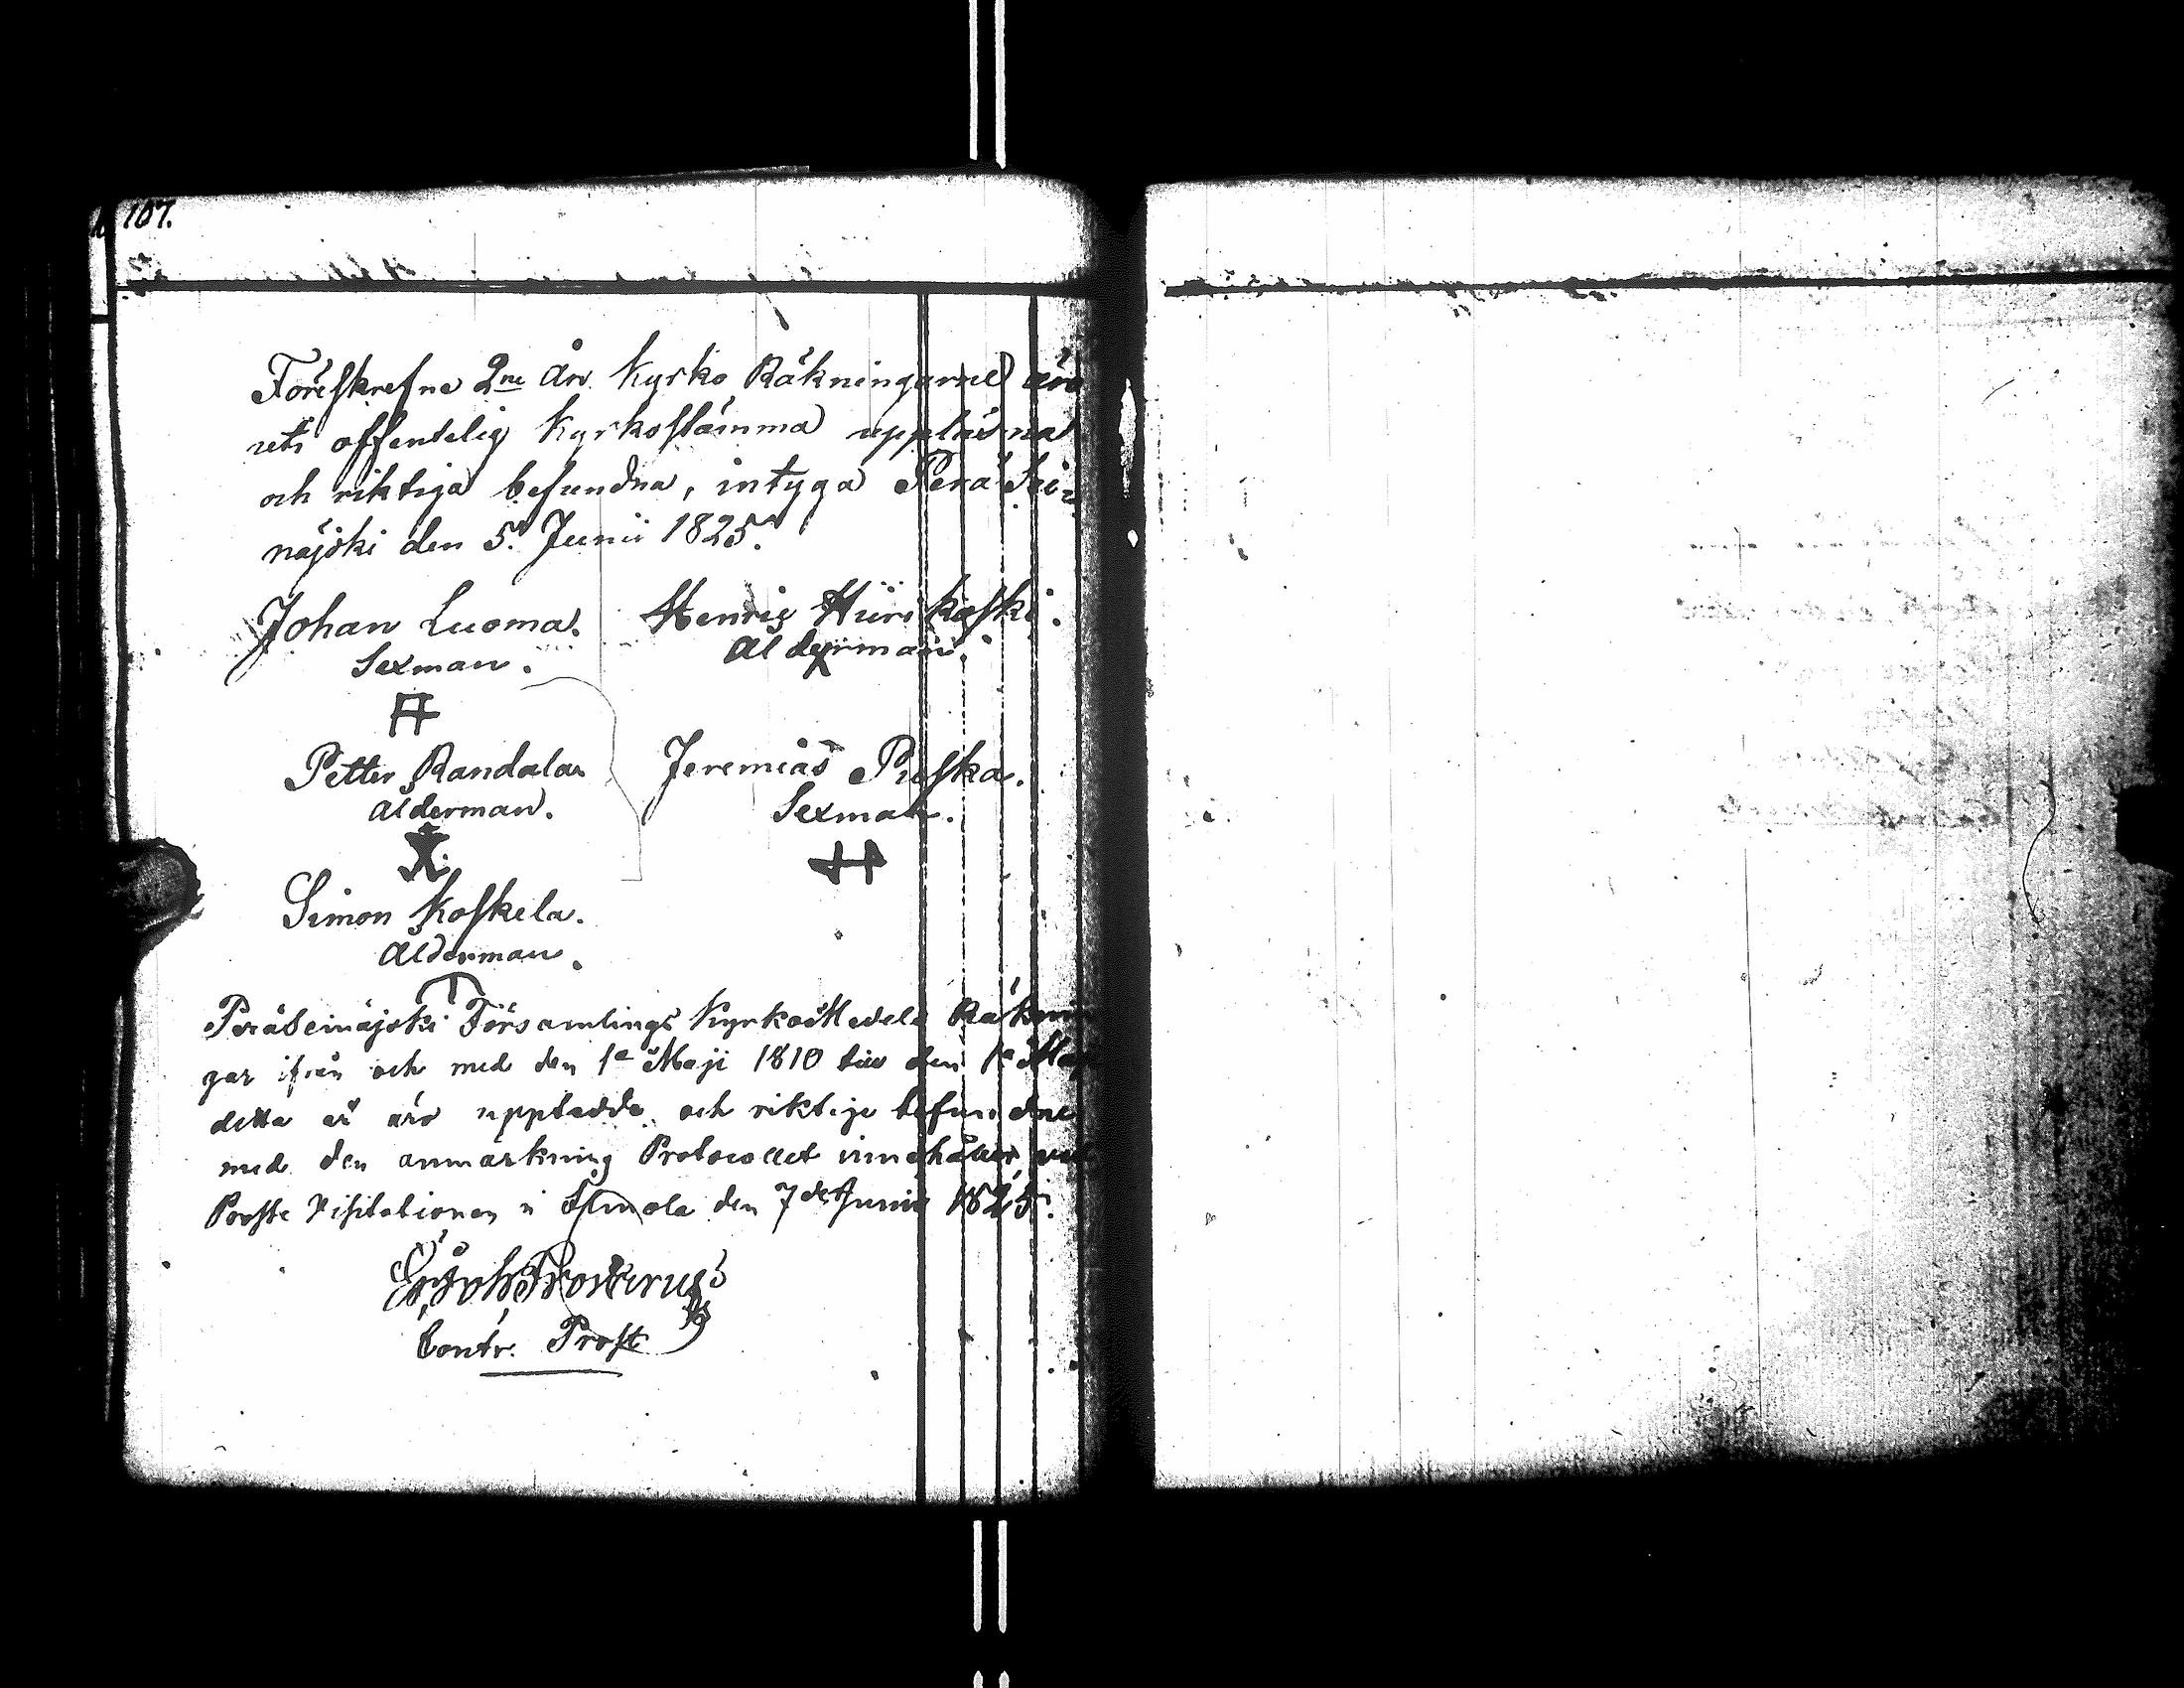 107.
Föreskrefne 2ne års Kyrko Räkningarne äro
uti offentelig Kyrkostämma uppläsna
och riktiga befundna, intyga Perä Sei-
näjoki den 5. Junii 1825.
Johan Luoma. Henrig Hiiri koski.
Sexman. Ålderman.
Petter Randala Jeremias Puska.
Ålderman. Sexman.
Simon Koskela.
Ålderman.
Peräseinäjoki Församlings Kyrko Medels Räknin
gar ifrån och med den 1a Maji 1810 till den 1a Maji
detta år äro uppladde och riktige befundne
med den anmärkning Protocollet innehåller, vid
Prosts Visitationen i Ilmola den 7de Junii 1825.
Contr. Prost